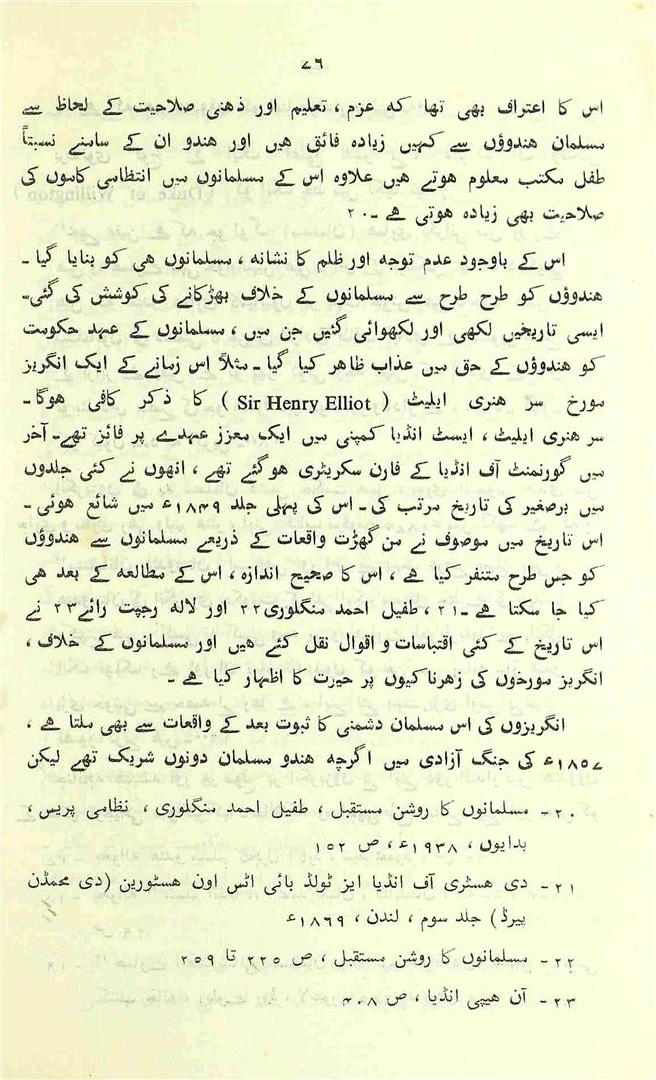 ۷۶
اس کا اعتراف بھی تھا کہ عزم ، تعلیم اور ذھنی صلاحیت کے لحاظ سے
مسلمان ھندوؤں سے کہیں زیادہ فائق ھیں اور ھندو ان کے سامنے نسبتاً
طفل مکتب معلوم ھوتے ھیں علاوہ اس کے مسلمانوں میں انتظامی کاموں کی
صلاحیت بھی زیادہ ھوتی ھے ۔۲۰
اس کے باوجود عدم توجہ اور ظلم کا نشانہ ، مسلمانوں ھی کو بنایا گیا ۔
ھندوؤں کو طرح طرح سے مسلمانوں کے خلاف بھڑکانے کی کوشش کی گئی۔
ایسی تاریخیں لکھی اور لکھوائی گئیں جن میں ، مسلمانوں کے عہد حکومت
کو ھندوؤں کے حق میں عذاب ظاھر کیا گیا ۔ مثلاً اس زمانے کے ایک انگریز
مورخ سر ھنری ایلیٹ ( Sir Henry Elliot ) کا ذکر کافی ھوگا۔
سر ھنری ایلیٹ ، ایسٹ انڈیا کمپنی میں ایک معزز عہدے پر فائز تھے۔ آخر
میں گورنمنٹ آف انڈیا کے فارن سکریٹری ھوگئے تھے ، انھوں نے کئی جلدوں
میں برصغیر کی تاریخ مرتب کی ۔ اس کی پہلی جلد ۱۸۴۹ء میں شائع ھوئی ۔
اس تاریخ میں موصوف نے من گھڑت واقعات کے ذریعے مسلمانوں سے ھندوؤں
کو جس طرح متنفر کیا ھے ، اس کا صحیح اندازہ ، اس کے مطالعہ کے بعد ھی
کیا جا سکتا ھے ۔۲۱ ، طفیل احمد منگلوری۲۲ اور لالہ رجپت رائے۲۳ نے
اس تاریخ کے کئی اقتباسات و اقوال نقل کئے ھیں اور مسلمانوں کے خلاف ،
انگریز مورخوں کی زھرناکیوں پر حیرت کا اظہار کیا ھے ۔
انگریزوں کی اس مسلمان دشمنی کا ثبوت بعد کے واقعات سے بھی ملتا ھے ،
۱۸۵۷ء کی جنگ آزادی میں اگرچہ ھندو مسلمان دونوں شریک تھے لیکن
۲۰۔ مسلمانوں کا روشن مستقبل ، طفیل احمد منگلوری ، نظامی پریس ،
بدایوں ، ۱۹۳۸ء ، ص ۱۵۲
۲۱۔ دی ھسٹری آف انڈیا ایز ٹولڈ بائی اٹس اون ھسٹورین (دی محمڈن
پیرڈ) جلد سوم ، لندن ، ۱۸۶۹ء
۲۲۔ مسلمانوں کا روشن مستقبل ، ص ۲۲۵ تا ۲۵۹
۲۳۔ آن ھیپی انڈیا ، ص ۴۰۸